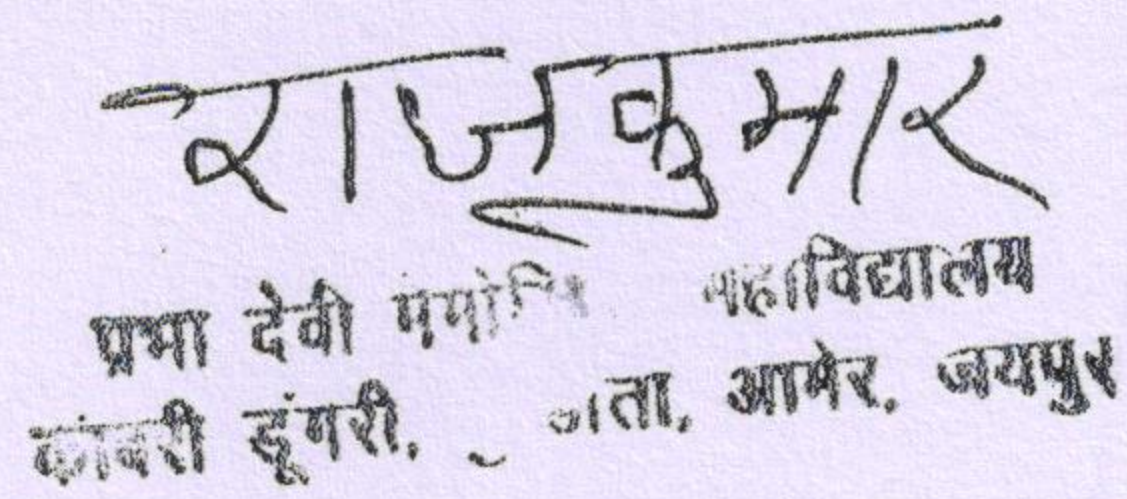 राजकुमार
प्रभा देवी महाविद्यालय
कांवरी डूंगरी, आमेर, जयपुर